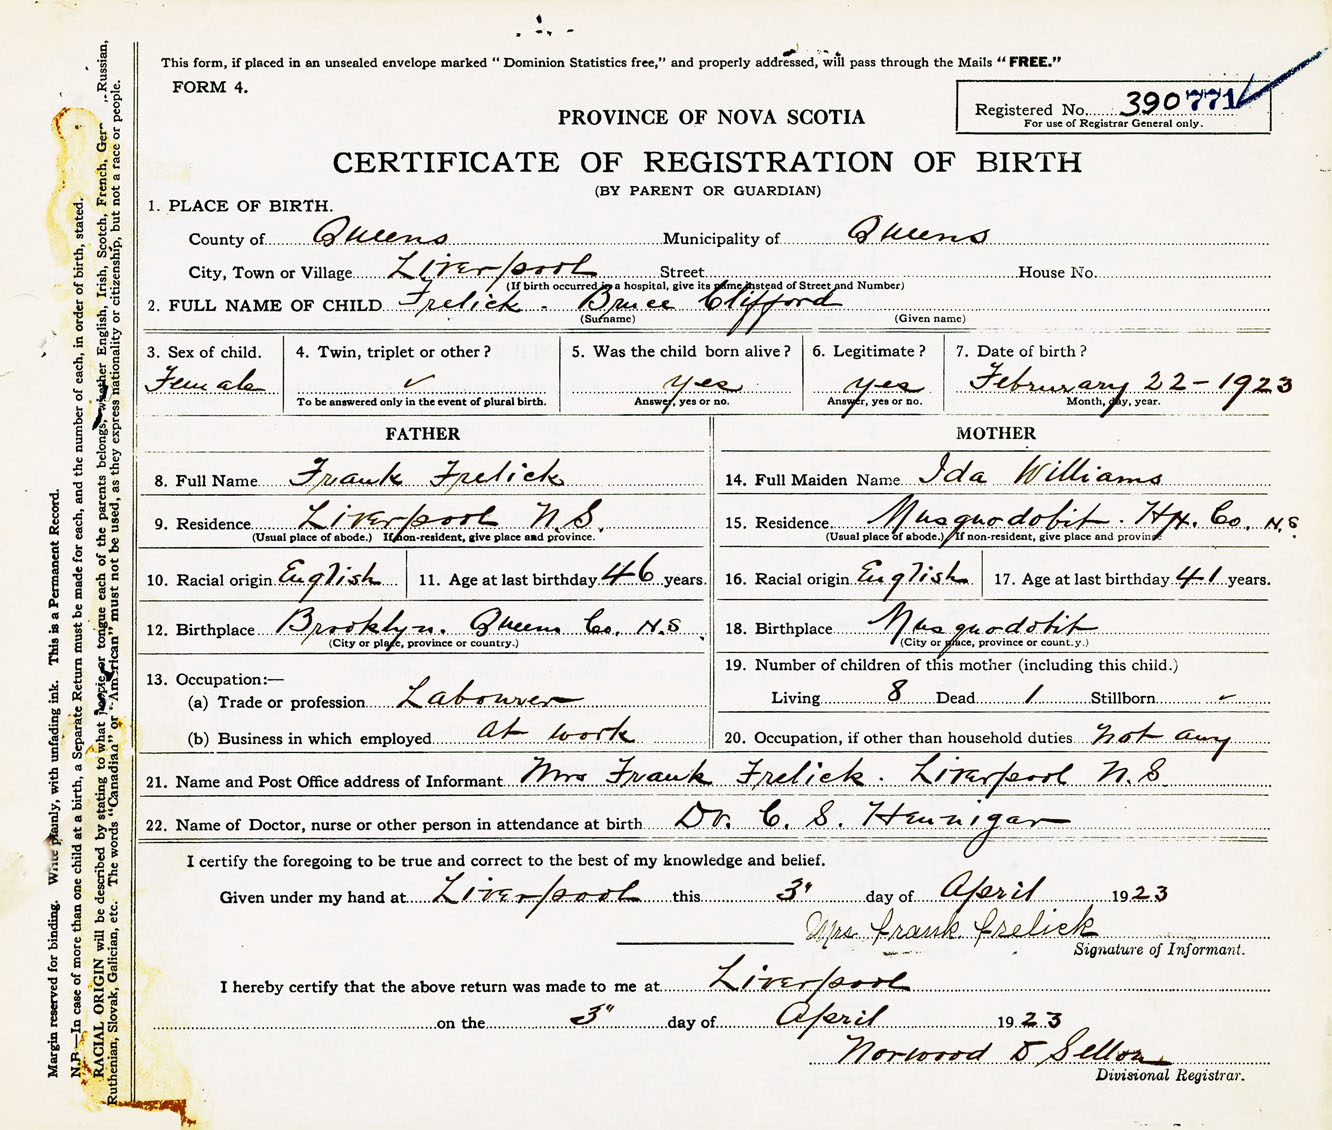 This form, if placed in an unsealed envelope marked “ Dominion Statistics free,” and properly addressed, will pass through the Mails “ FREE.”
FORM 4.
Registered No. 390771
For use of Registrar General only.
PROVINCE OF NOVA SCOTIA
CERTIFICATE OF REGISTRATION OF BIRTH
(BY PARENT OR GUARDIAN)
1. PLACE OF BIRTH.
County of Queens Municipality of Queens
City, Town or Village Liverpool Street House No.
(If birth occurred in a hospital, give its name instead of Street and Number)
2. FULL NAME OF CHILD Frelick. Bruce Clifford
(Surname) (Given name)
3. Sex of child. 4. Twin, triplet or other ? 5. Was the child born alive ? 6. Legitimate ? 7. Date of birth ?
Female ✓ yes yes Februrary 22 - 1923
To be answered only in the event of plural birth. Answer, yes or no. Answer, yes or no. Month, day, year.
FATHER MOTHER
8. Full Name Frank Frelick 14. Full Maiden Name Ida Williams
9. Residence Liverpool N.S. 15. Residence Musquodobit. Hx. Co. N.S
(Usual place of abode.) If non-resident, give place and province. (Usual place of abode.) If non-resident, give place and province.
10. Racial origin English 11. Age at last birthday 46 years. 16. Racial origin English 17. Age at last birthday 41 years.
12. Birthplace Brooklyn. Queens Co. N.S 18. Birthplace Musquodobit
(City or place, province or country.) (City or place, province or count.y.)
13. Occupation:— 19. Number of children of this mother (including this child.)
(a) Trade or profession Labourer Living 8 Dead 1 Stillborn -
(b) Business in which employed at work 20. Occupation, if other than household duties not any
21. Name and Post Office address of Informant Mrs Frank Frelick. Liverpool N.S
22. Name of Doctor, nurse or other person in attendance at birth Dr. C. S. Hennigar
I certify the foregoing to be true and correct to the best of my knowledge and belief.
Given under my hand at Liverpool this 3" day of April 1923
Mrs frank frelick
Signature of Informant.
I hereby certify that the above return was made to me at Liverpool
on the 3" day of April 1923
Norwood D Sellon
Divisional Registrar.
Margin reserved for binding. Write plainly, with unfading ink. This is a Permanent Record.
N.B.—In case of more than one child at a birth, a Separate Return must be made for each, and the number of each, in order of birth, stated.
RACIAL ORIGIN will be described by stating to what people or tongue each of the parents belongs, whether English, Irish, Scotch, French, Ger Russian,
Ruthenian, Slovak, Galician, etc. The words “Canadian” or “American” must not be used, as they express nationality or citizenship, but not a race or people.